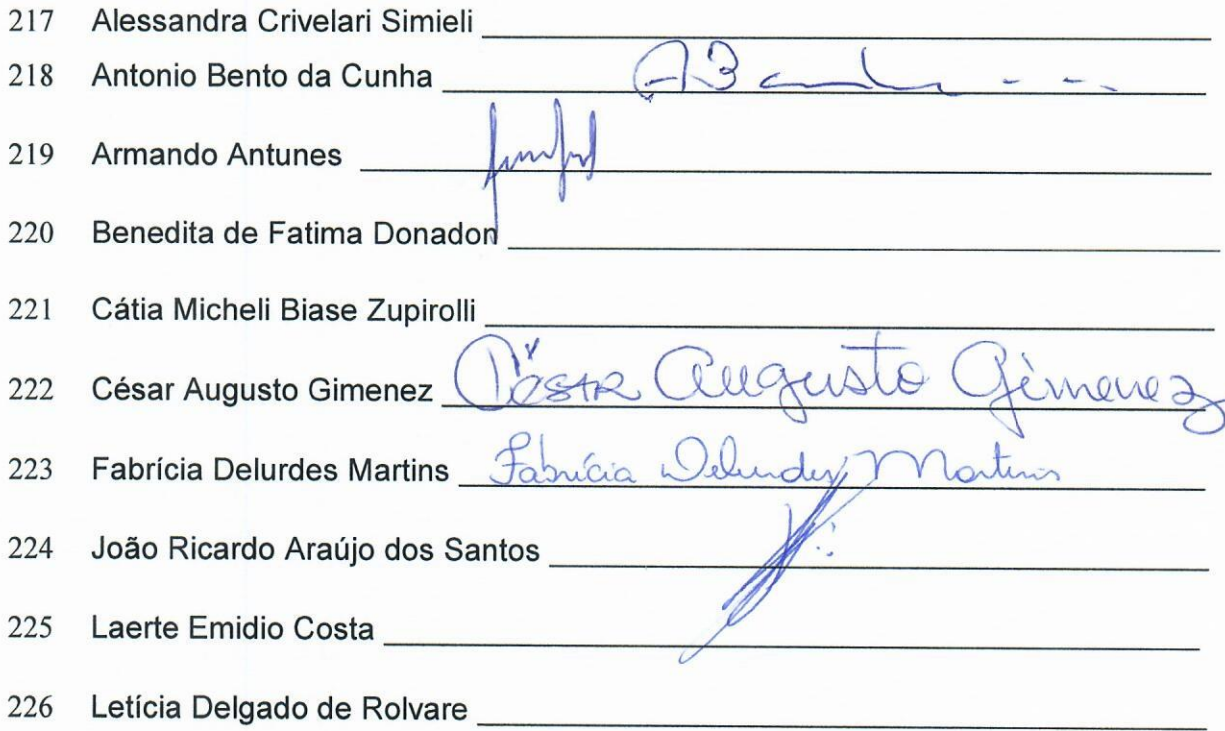 217 Alessandra Crivelari Simieli
218 Antonio Bento da Cunha
219 Armando Antunes
220 Benedita de Fatima Donadon
221 Cátia Micheli Biase Zupirolli
222 César Augusto Gimenez César Augusto Gimenez
223 Fabrícia Delurdes Martins Fabrícia Delurdes Martins
224 João Ricardo Araújo dos Santos
225 Laerte Emidio Costa
226 Letícia Delgado de Rolvare